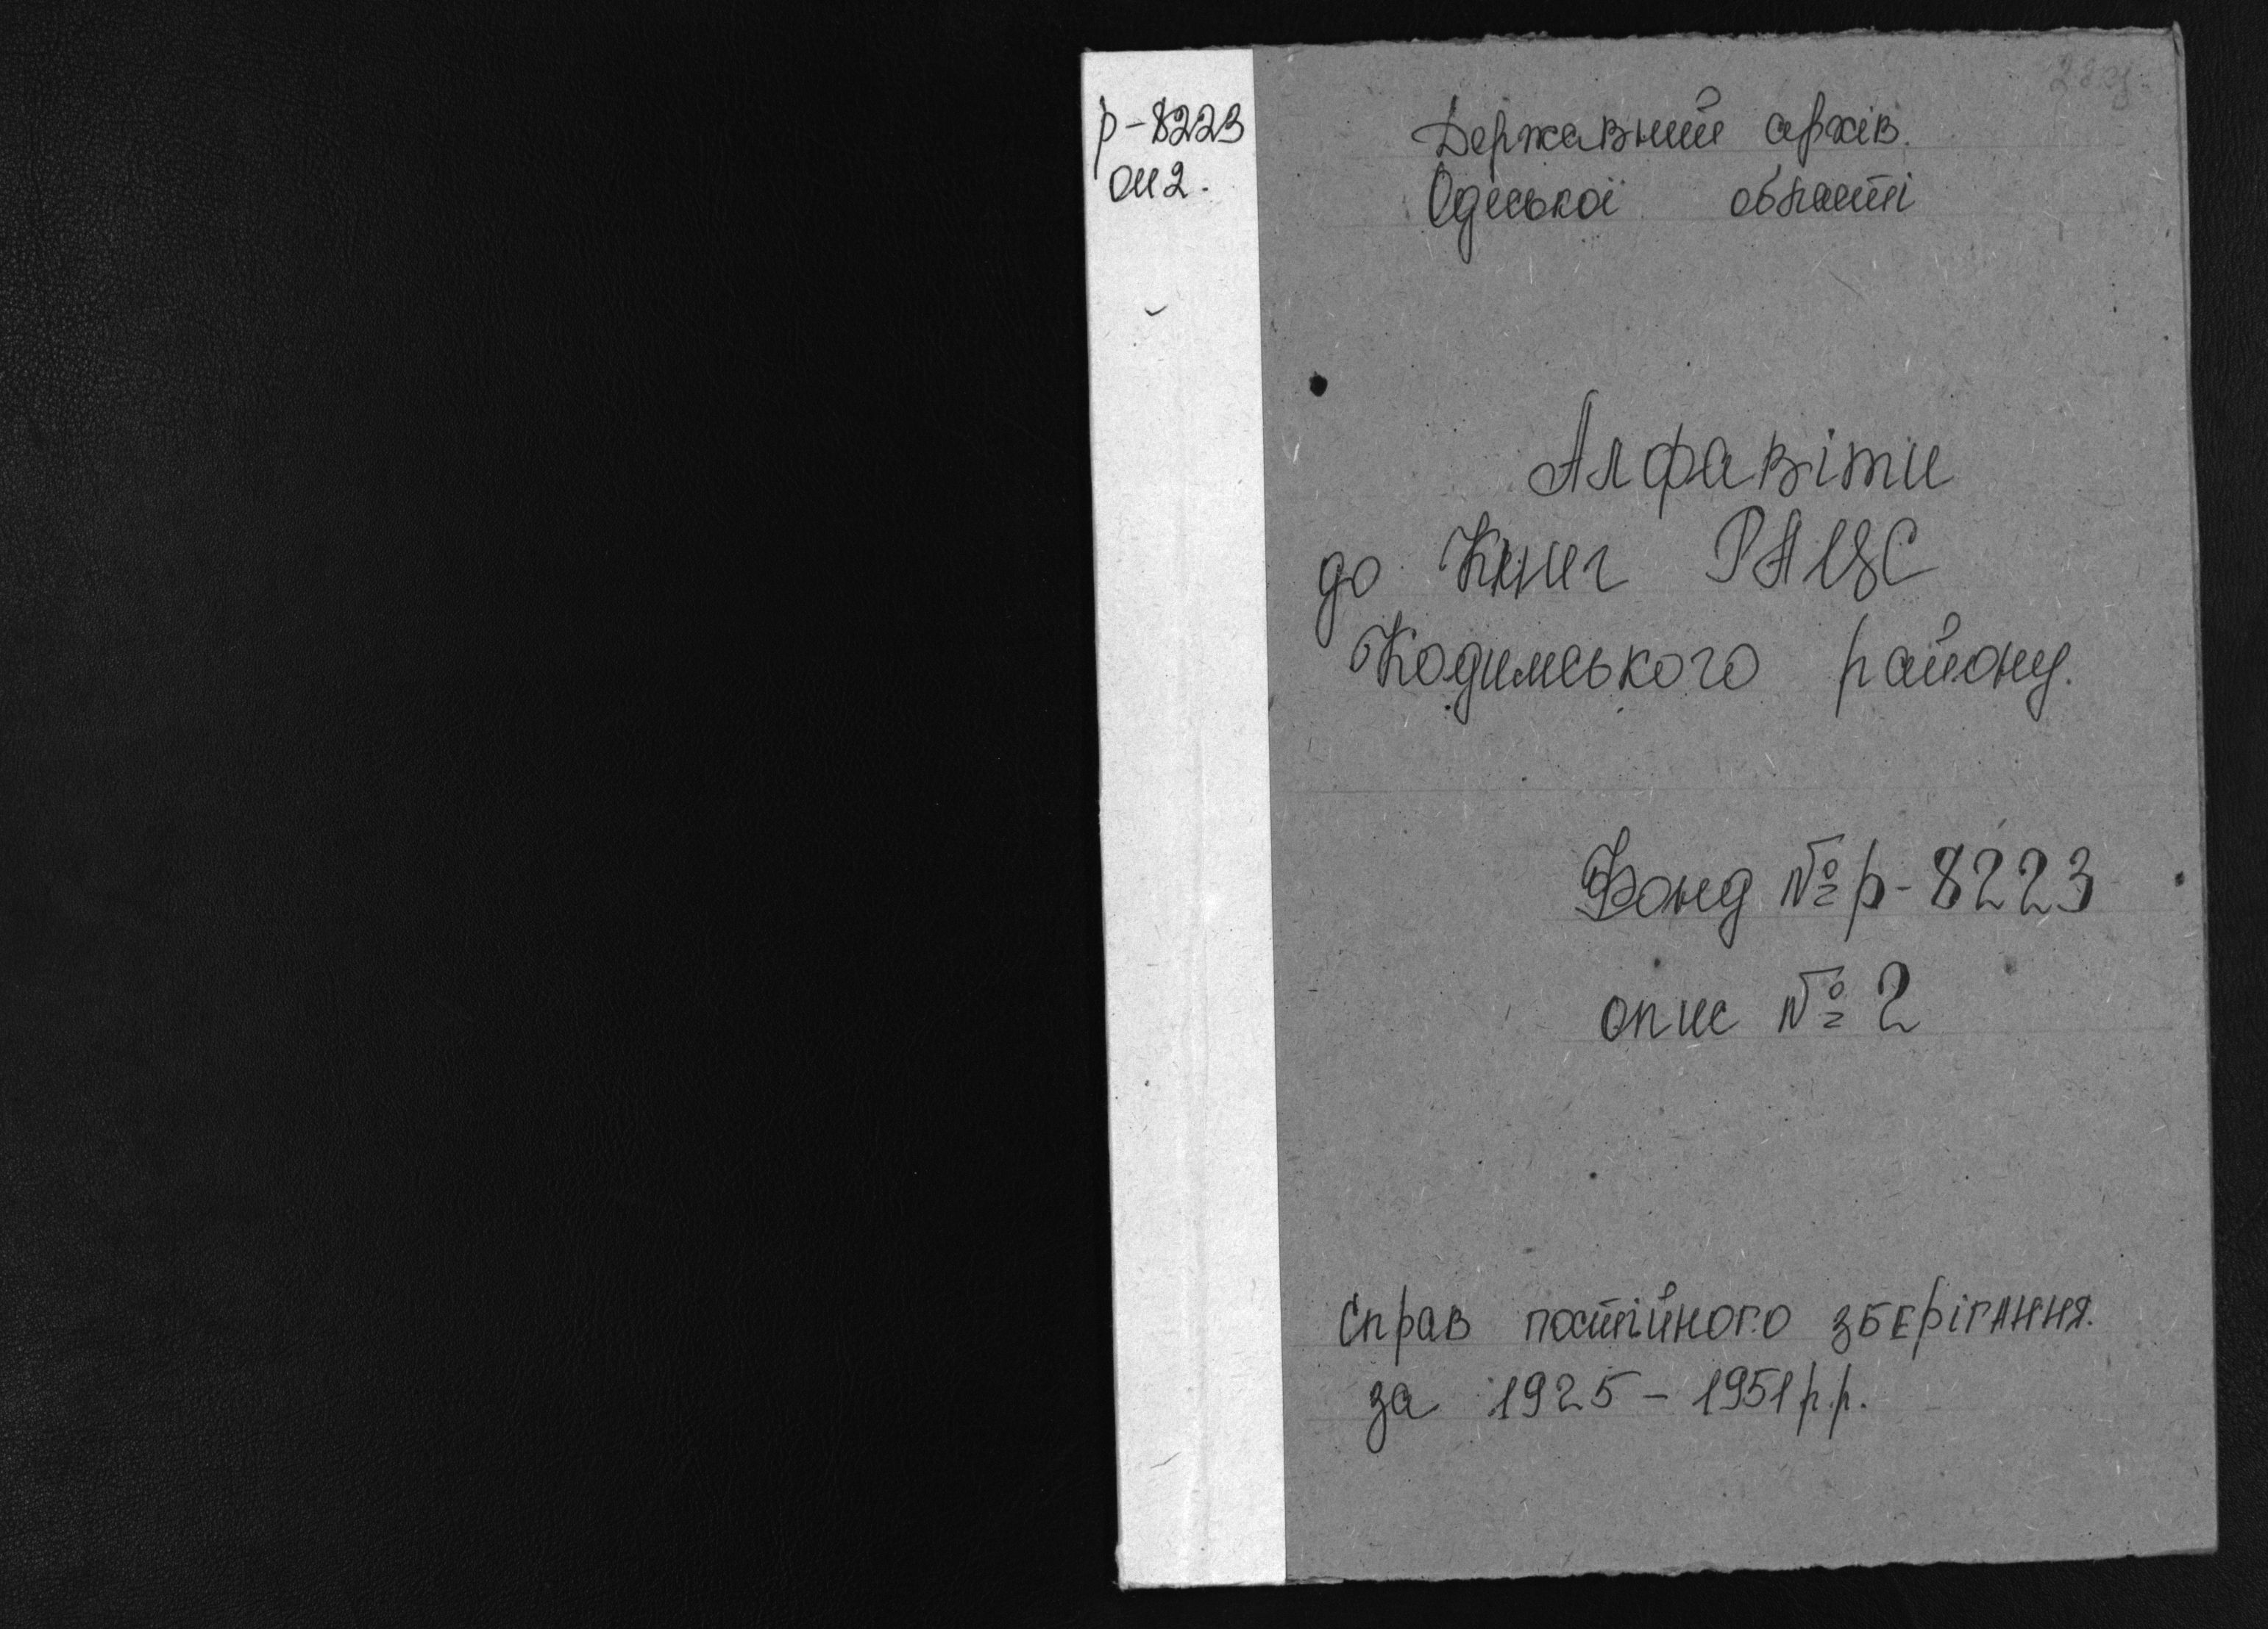 р-8223
оп 2.
Державний архів.
Одеської області
Алфавіти
до Книг РАЦС
Кодимського району.
Фонд № р-8223
опис № 2
Справ постійного зберігання.
за 1925-1951 р.р.